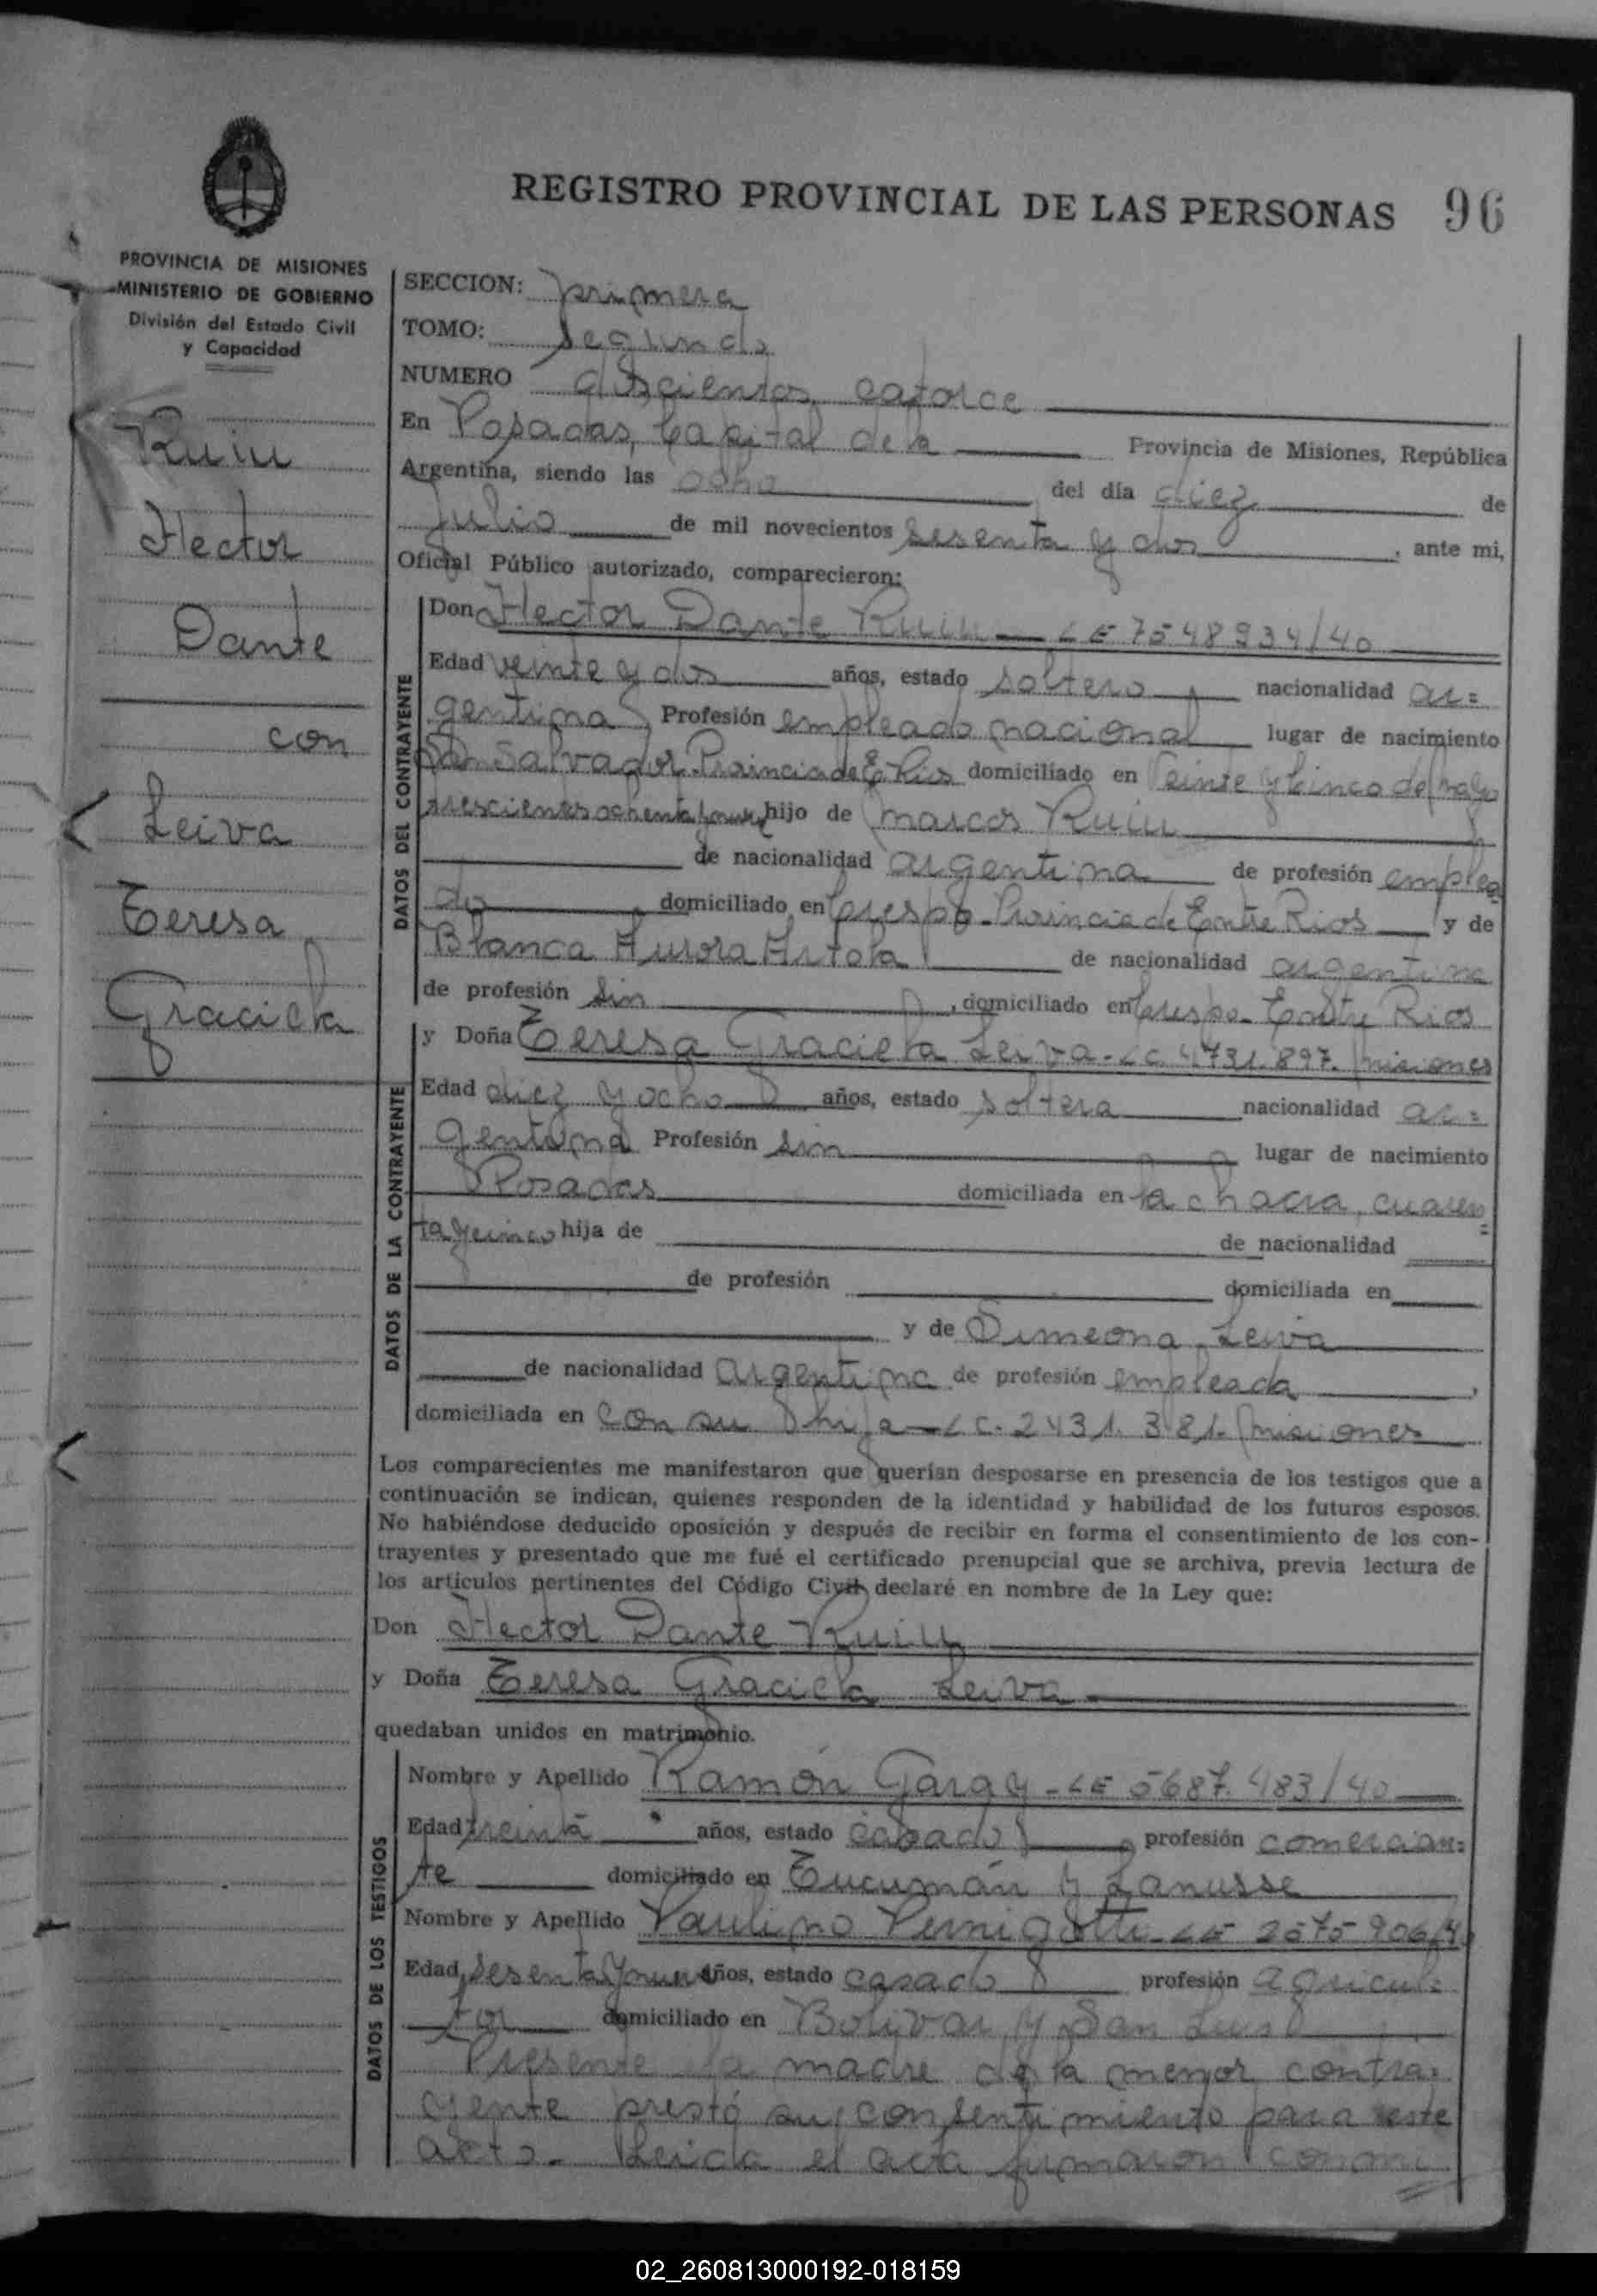 REGISTRO PROVINCIAL DE LAS PERSONAS 96
PROVINCIA DE MISIONES
MINISTERIO DE GOBIERNO
División del Estado Civil
y Capacidad
Ruiu
Hector
Dante
con
Leiva
Teresa
Graciela
SECCION: primera
TOMO: segundo
NUMERO doscientos catorce
En Posadas, Capital de la Provincia de Misiones, República
Argentina, siendo las ocho del día diez de
Julio de mil novecientos sesenta y dos, ante mi,
Oficial Público autorizado, comparecieron:
DATOS DEL CONTRAYENTE
Don Hector Dante Ruiu - LE 7548934/40
Edad veinte y dos años, estado soltero, nacionalidad ar=
gentina Profesión empleado nacional lugar de nacimiento
San Salvador Provincia de E Rios domiciliado en Veinte y Cinco de Mayo
trescientos ochenta y nueve hijo de Marcos Ruiu
de nacionalidad argentina de profesión emplea
do, domiciliado en Crespo - Provincia de Entre Rios y de
Blanca Aurora Artola de nacionalidad argentina
de profesión sin, domiciliado en Crespo - Entre Rios
DATOS DE LA CONTRAYENTE
y Doña Teresa Graciela Leiva - LC 4.731.897. Misiones
Edad diez y ocho años, estado soltera nacionalidad ar=
gentina Profesión sin lugar de nacimiento
Posadas domiciliada en la chacra, cuaren=
ta y cinco hija de de nacionalidad
de profesión domiciliada en
y de Simeona Leiva
de nacionalidad argentina de profesión empleada,
domiciliada en con su hija - LC. 2431.381. Misiones
Los comparecientes me manifestaron que querían desposarse en presencia de los testigos que a
continuación se indican, quienes responden de la identidad y habilidad de los futuros esposos.
No habiéndose deducido oposición y después de recibir en forma el consentimiento de los con-
trayentes y presentado que me fué el certificado prenupcial que se archiva, previa lectura de
los artículos pertinentes del Código Civil declaré en nombre de la Ley que:
Don Hector Dante Ruiu
y Doña Teresa Graciela Leiva
quedaban unidos en matrimonio.
DATOS DE LOS TESTIGOS
Nombre y Apellido Ramón Garay - LE 5687.483/40
Edad treinta años, estado casado, profesión comercian=
te domiciliado en Tucumán y Lanusse
Nombre y Apellido Paulino Pernigotti - LE 2575906/40
Edad sesenta y nueve años, estado casado profesión agricul=
tor domiciliado en Bolivar y San Luis
Presente la madre de la menor contra=
yente prestó su consentimiento para este
acto. Leida el acta firmaron conmi
02_260813000192-018159